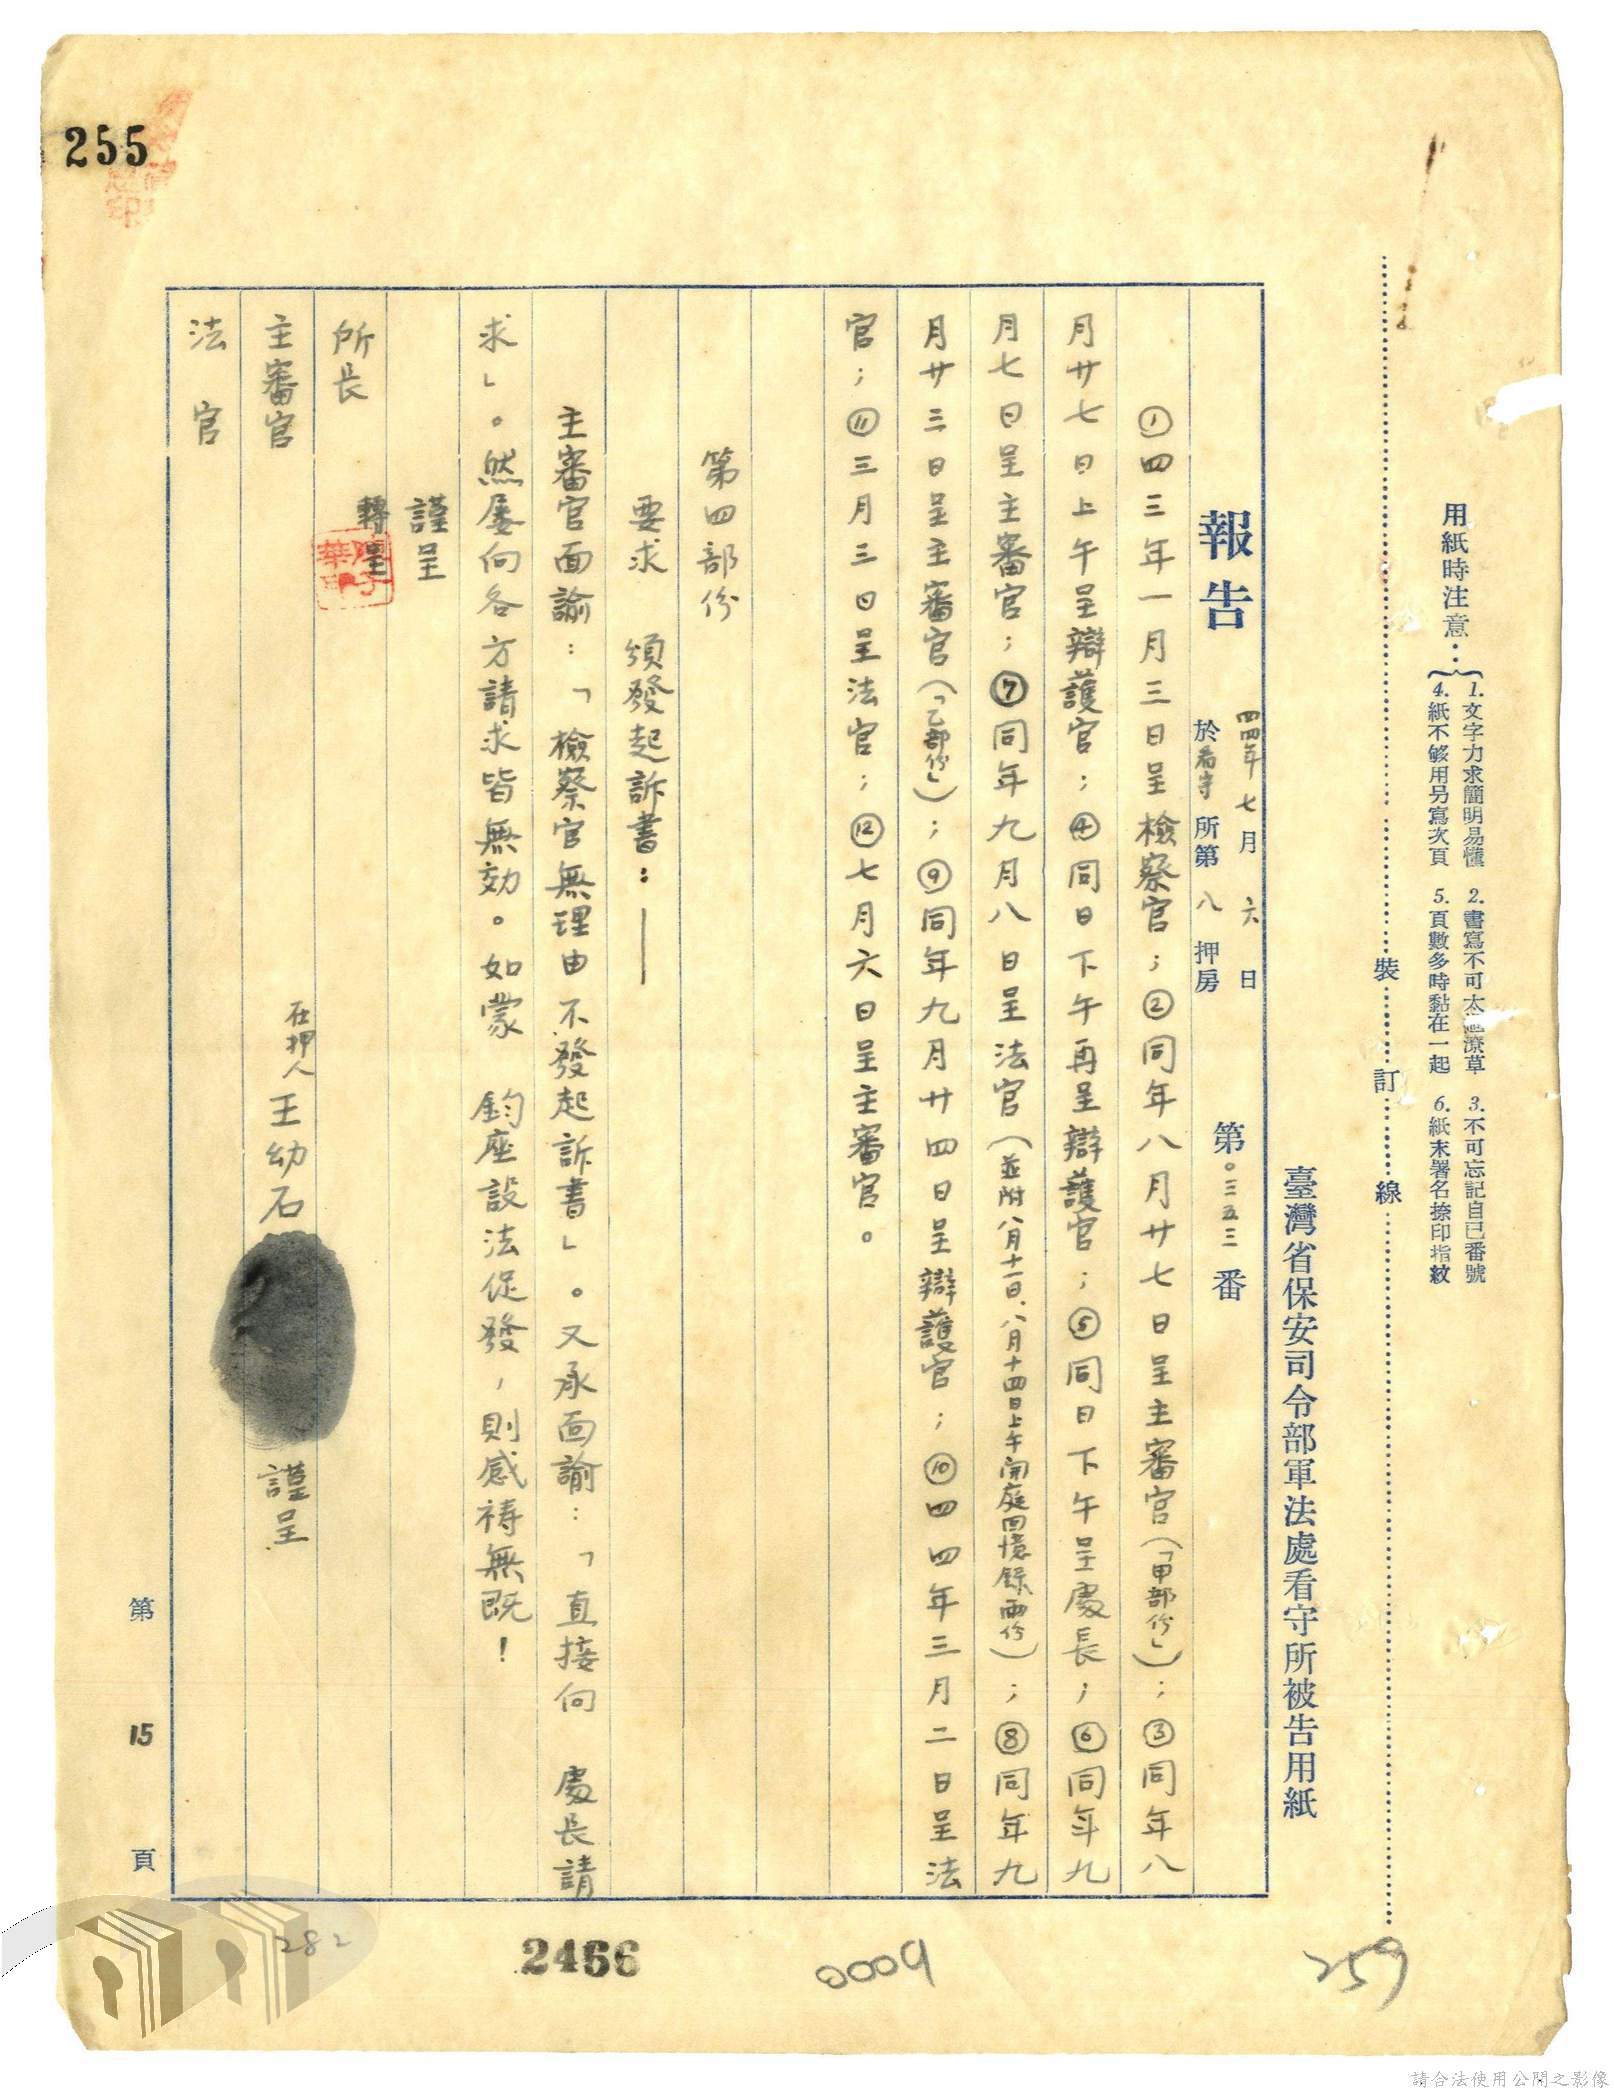 255
用紙時注意：
1.文字力求簡明易懂 2.書寫不可太潦草 3.不可忘記自已番號
4.紙不够用另寫次頁 5.頁數多時黏在一起 6.紙末署名捺印指紋
裝訂線
臺灣省保安司令部軍法處看守所被告用紙
報告
四四年七月六日
於看守所第八押房
第〇三五三番
①四三年一月三日呈檢察官；②同年八月廿七日呈主審官（「甲部份」）；③同年八
月廿七日上午呈辯護官；④同日下午再呈辯護官；⑤同日下午呈處長；⑥同年九
月七日呈主審官；⑦同年九月八日呈法官（並附八月十一日、八月十四日上午開庭回憶錄兩份）；⑧同年九
月廿三日呈主審官（「乙部份」）；⑨同年九月廿四日呈辯護官；⑩四四年三月二日呈法
官；⑪三月三日呈法官；⑫七月六日呈主審官。
第四部份
要求 頒發起訴書：——
主審官面諭：「檢察官無理由不發起訴書」。又承面諭：「直接向 處長請
求」。然屢向各方請求皆無効。如蒙 鈞座設法促發，則感禱無既！
謹呈
所長 轉呈
主審官
法官
在押人 王幼石 謹呈
第15頁
282
2466
0009
259
請合法使用公開之影像